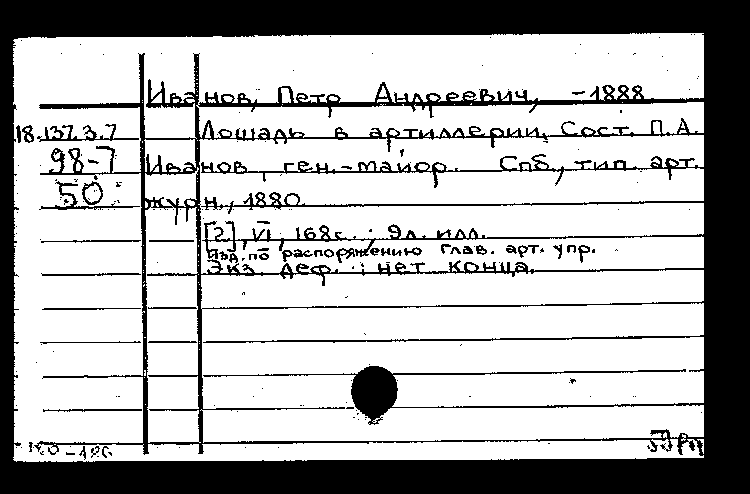 Иванов, Петр Андреевич, -1888
18.137.3.7 Лошадь в артиллерии. Сост. П.А.
98-7 Иванов, ген.-майор. Спб., тип. арт.
50 журн., 1880.
[2], VI, 168с.; 9л. илл.
Изд. по распоряжению Глав. арт. упр.
Экз. деф.: нет конца.